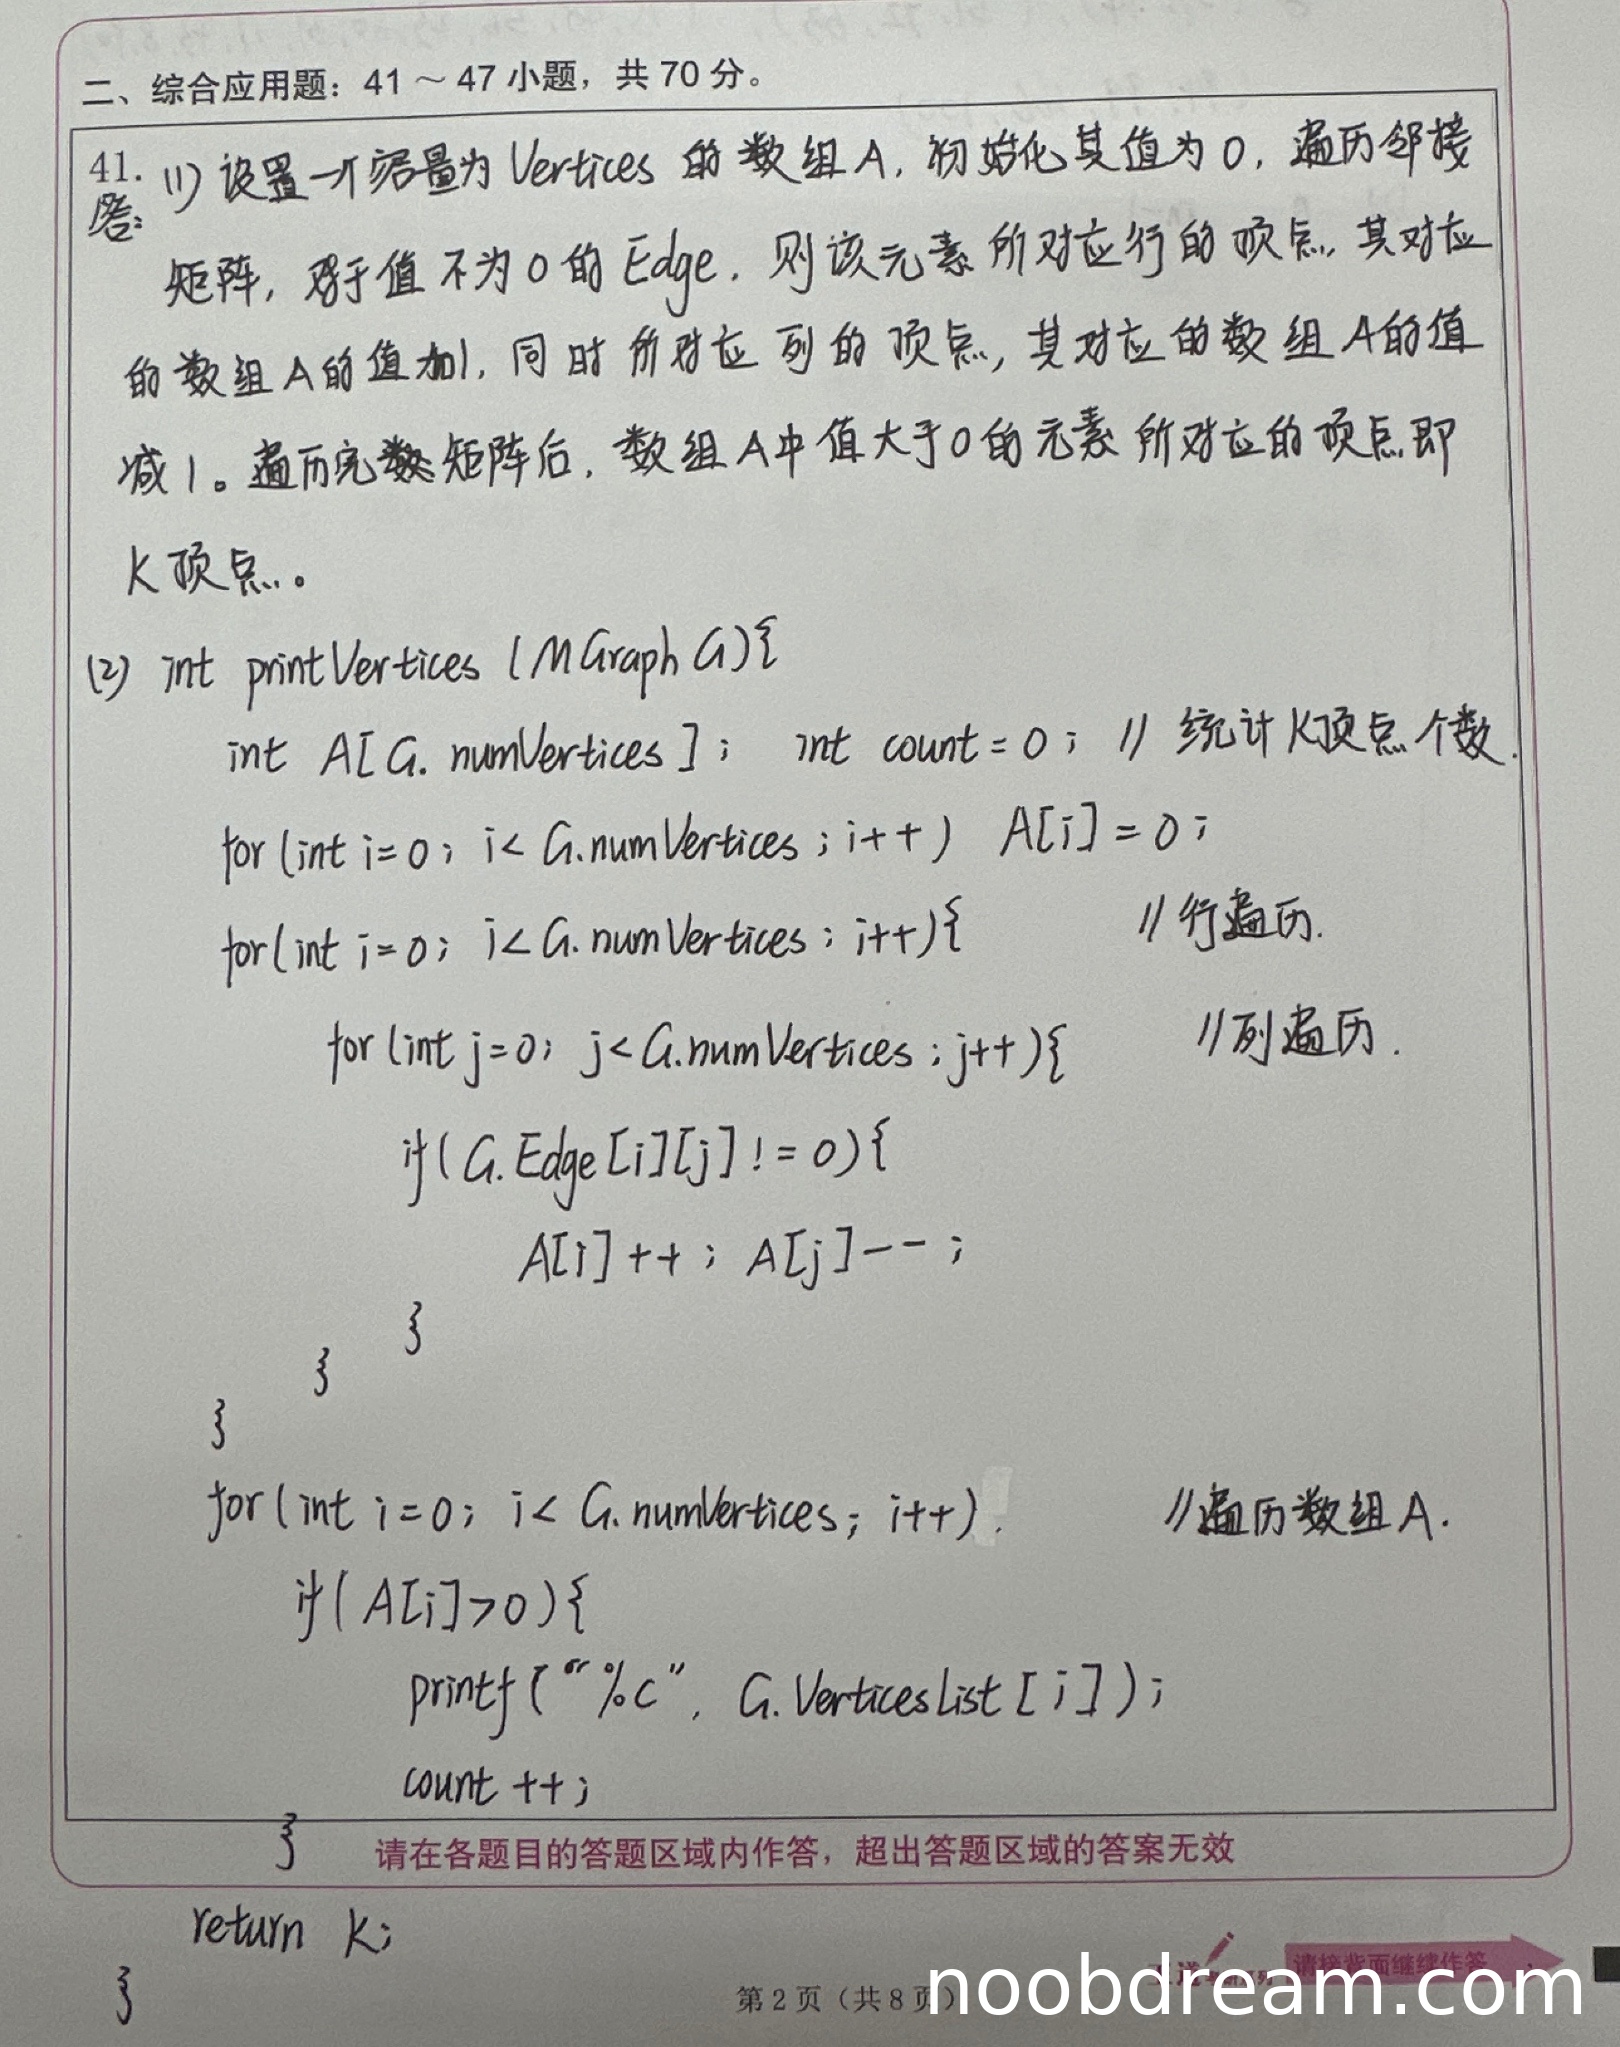 二、综合应用题：41 ～ 47 小题，共 70 分。
41. (1) 设置一个容量为 Vertices 的数组A，初始化其值为0，遍历邻接
答:
矩阵，对于值不为0的Edge，则该元素所对应行的顶点，其对应
的数组A的值加1，同时所对应列的顶点，其对应的数组A的值
减1。遍历完矩阵后，数组A中值大于0的元素所对应的顶点即
K顶点。
(2) int printVertices (MGraph G){
int A[G. numVertices]; int count = 0; // 统计K顶点个数.
for(int i=0; i< G.numVertices; i++) A[i] = 0;
for(int i=0; i<G.numVertices; i++){ //行遍历.
for(int j=0; j<G.numVertices; j++){ //列遍历.
if(G.Edge[i][j] != 0){
A[i]++; A[j]--;
}
}
}
for(int i=0; i< G.numVertices; i++) //遍历数组A.
if(A[i]>0){
printf("%c", G.VerticesList[i]);
count ++;
}
请在各题目的答题区域内作答，超出答题区域的答案无效
return K;
}
请接背面继续作答
第 2 页（共 8 页）
noobdream.com